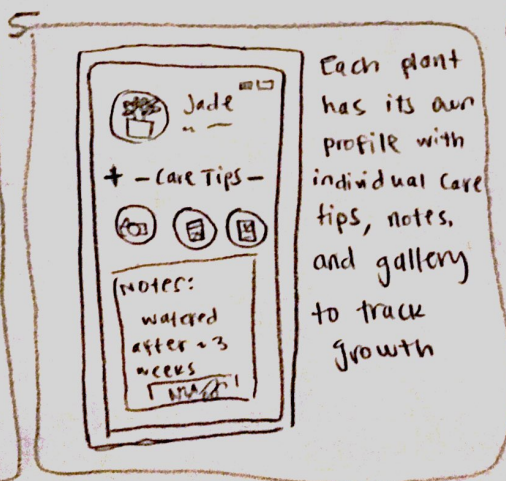 5
Jade
+ - Care Tips -
Notes:
watered
after ~ 3
weeks
Each plant
has its own
profile with
individual care
tips, notes,
and gallery
to track
growth